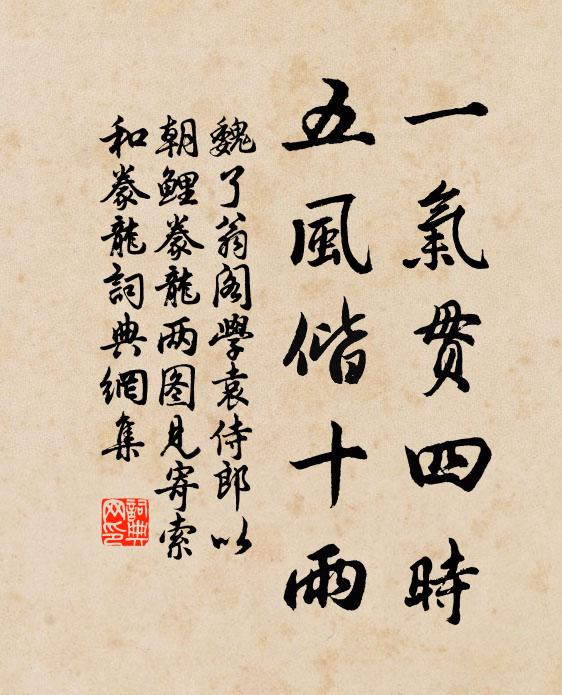 一氣貫四時
五風偕十雨
魏了翁閣學袁侍郎以
朝鯉豢龍两图見寄索
和豢龍詞典網集
詞典
网印